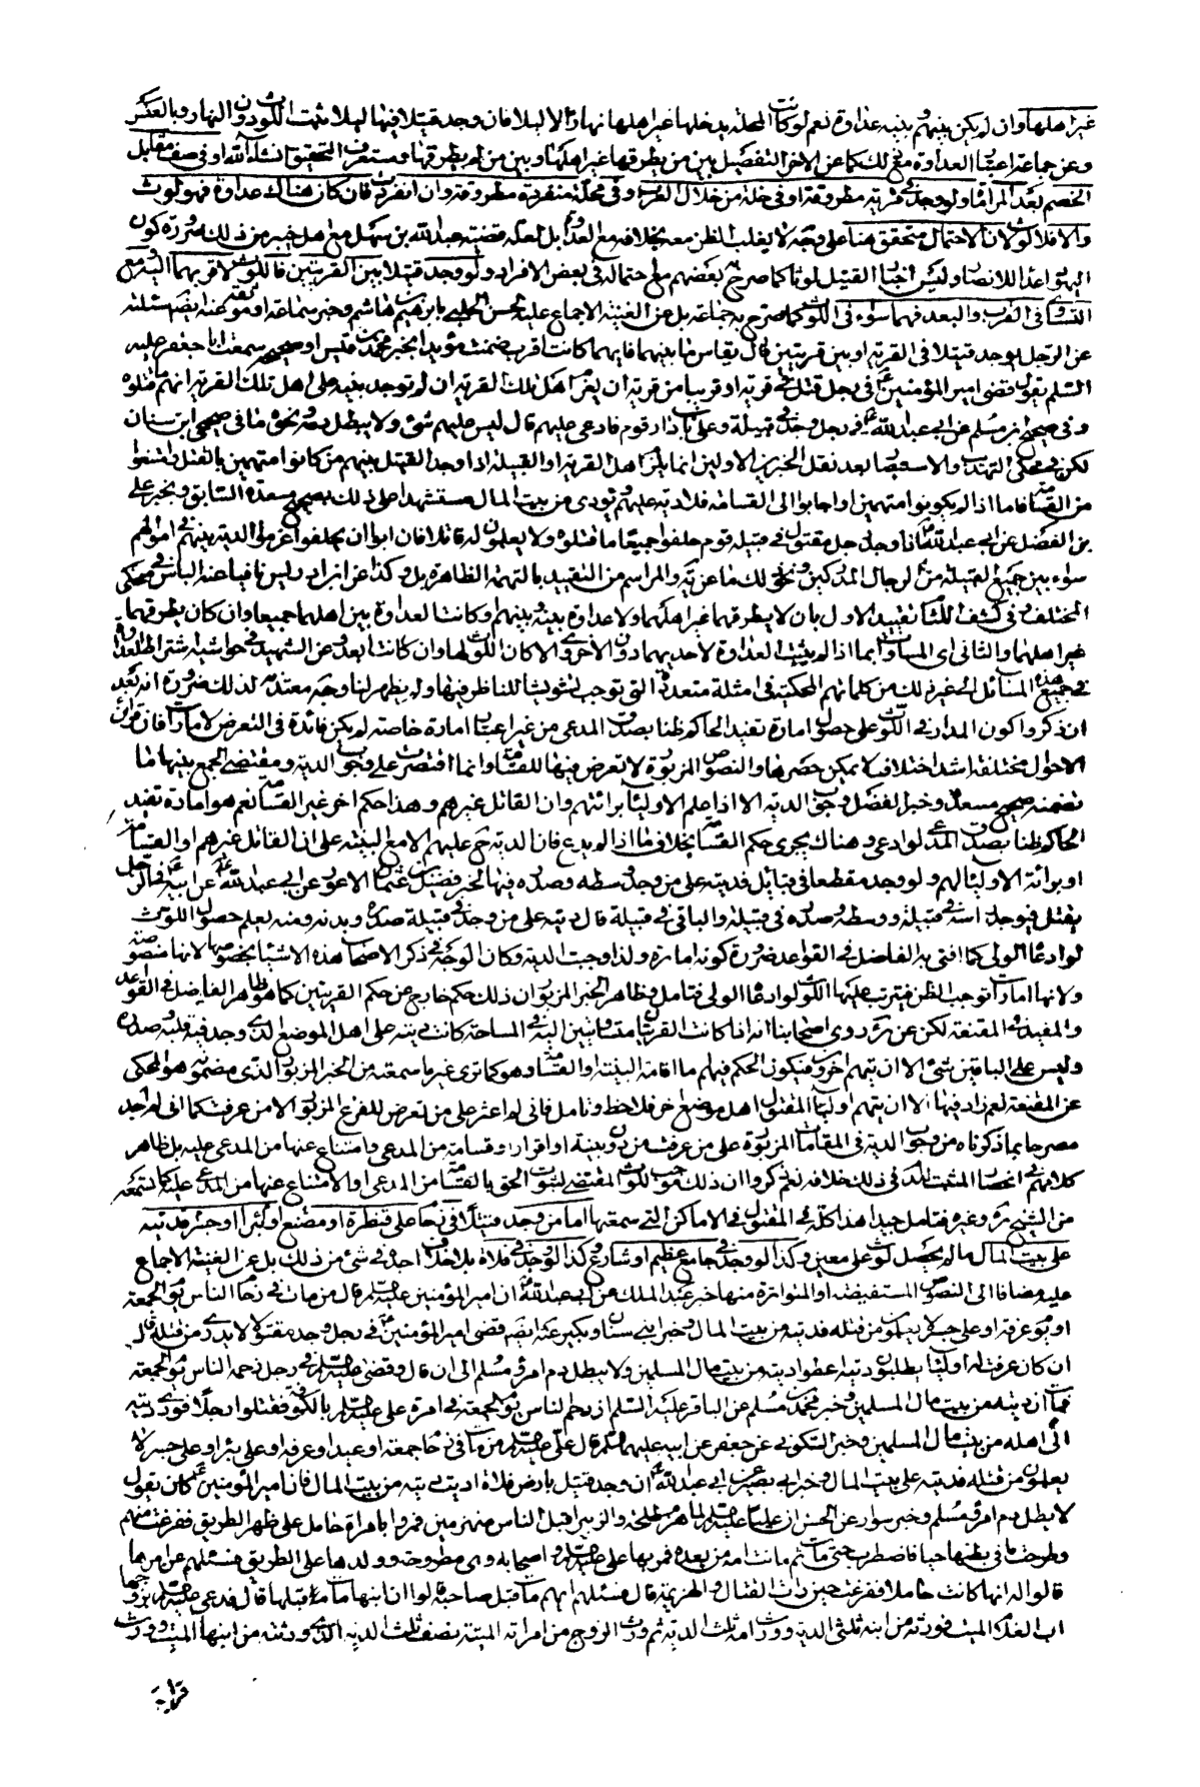 غير اهلها وان لم يكن بينهم وبينه عداوة نعم لو كانت المحلة يدخلها غير اهلها نهارا لا ليلا فان وجد قتيلا فيها ليلا ثبت اللوث دون النهار وبالعكس
وعن جماعة اعتبار العداوة مع ذلك كما عن الاخر التفصيل بين من يطرقها غير اهلها وبين من لم يطرقها وستعرف التحقيق انشاء الله او في صف مقابل
الخصم بعد المراماة ولو وجد في قرية مطروقة او في خلة من خلال العرب او في محلة منفردة مطروقة وان انفردت فان كان هناك عداوة فهو لوث
والا فلا لوث لان الاحتمال متحقق هنا على وجه لا يغلب الظن معه بخلافه مع العداوة بل لعله قضية عبد الله بن سهل مع اهل خيبر من ذلك ضرورة كون
اليهود اعداء للانصار وليس اخبار القتيل لوثا كما صرح به بعضهم مع احتماله في بعض الافراد ولو وجد قتيلا بين القريتين فاللوث لاقربهما اليه ومع
التساوى في القرب والبعد فهما سواء في اللوث كما صرح به جماعة بل عن الغنية الاجماع عليه لحسن الحلبي بابراهيم بن هاشم وخبر سماعة او موثقه عنه ايضا سئلته
عن الرجل يوجد قتيلا في القرية او بين قريتين قال يقاس ما بينهما فايهما كانت اقرب ضمنت مؤيدا بخبر محمد بن قيس او صحيحه سمعت ابا جعفر عليه
السلم يقول قضى امير المؤمنين في رجل قتل في قرية او قريبا من قرية ان يغرم اهل تلك القرية ان لم توجد بينة على اهل تلك القرية انهم ما قتلوه
وفي صحيح ابن مسلم عن ابي عبد الله في رجل وجد في قبيلة وعلى باب دار قوم فادعى عليهم قال ليس عليهم شئ ولا يبطل دمه ونحوه ما في صحيح ابن سنان
لكن في محكي التهذيب والاستبصار بعد نقل الخبرين الاولين انما يلزم اهل القرية او القبيلة اذا وجد القتيل بينهم من كانوا متهمين بالقتل وامتنعوا
من القسامة فاما اذا لم يكونوا متهمين او اجابوا الى القسامة فلا دية عليهم وتؤدى من بيت المال مستشهدا على ذلك بصحيح مسعدة السابق وبخبر علي
بن الفضل عن ابي عبد الله اذا وجد رجل مقتول في قبيلة قوم حلفوا جميعا ما قتلوه ولا يعلمون له قاتلا فان ابوا ان يحلفوا غرموا الدية بينهم في اموالهم
سواء بين جميع القبيلة من الرجال المدركين ونحو ذلك ما عن ية والمراسم من التقييد بالتهمة الظاهرة بل وكذا عن ئر وليس نافيا عنه الباس في محكي
المختلف وفي كشف اللثام تقييد الاول بان لا يطرقهما غير اهلهما ولا عداوة بينه وبينهم او كانت العداوة بين اهلهما جميعا وان كان يطرقهما
غير اهلهما والثاني اى المساواة بما اذا لم يثبت العداوة لاحديهما دون الاخرى والا كان اللوث لها وان كانت ابعد وعن الشهيد في حواشيه اشتراط العداوة
في جميع هذه المسائل الى غير ذلك من كلماتهم المحكية في امثلة متعددة التي توجب تشويشا للناظر فيها ولم يظهر لنا وجه معتد به لذلك ضرورة انه بعد
ان ذكروا كون المدار في اللوث على حصول امارة تفيد الحاكم ظنا بصدق المدعى من غير اعتبار امارة خاصة لم يكن فائدة في التعرض لامارات فان قرائن
الاحوال مختلفة اشد اختلاف لا يمكن حصرها والنصوص المزبورة لا تعرض فيها للقسامة وانما اقتصرت على وجوب الدية ومقتضى الجمع بينها ما
تضمنه صحيح مسعدة وخبر الفضل وجوب الدية الا اذا علم الاولياء برائتهم وان القاتل غيرهم وهذا حكم اخر غير القسامة نعم هو امارة تفيد
الحاكم ظنا بصدق المدعى لو ادعى وهناك يجرى حكم القسامة بخلاف ما اذا لم يدع فان الدية ح عليهم الا مع البينة على ان القاتل غيرهم او القسامة
او برائة الاولياء لهم ولو وجد مقطعا في قبائل فديته على من وجد وسطه وصدره فيها لخبر فضيل بن عثمان الاعور عن ابي عبد الله عن ابيه في الرجل
يقتل فيوجد راسه في قبيلة ووسطه وصدره في قبيلة والباقي في قبيلة قال ديته على من وجد في قبيلة صدره وبدنه ومنه يعلم حصول اللوث
لو ادعاه الولي كما افتى به الفاضل في القواعد ضرورة كونه امارة ولذا وجبت الدية وكان الوجه في ذكر الاصحاب هذه الاشياء بخصوصها لانها منصوصة
ولانها امارات توجب الظن فيترتب عليها اللوث لو ادعاه الولي فتامل وظاهر الخبر المزبور ان ذلك حكم خارج عن حكم القريتين كما هو ظاهر الفاضل في القواعد
والمفيد في المقنعة لكن عن ئر روى اصحابنا انه اذا كانت القريتان متساويتين اليه في المساحة كانت ديته على اهل الموضع الذي وجد فيه قلبه وصدره
وليس على الباقين شئ الا ان يتهم اخرون فيكون الحكم فيهم ما اقامة البينة او القسامة وهو كما ترى غير ما سمعته من الخبر المزبور الذي مضمونه هو المحكي
عن المقنعة نعم زاد فيها الا ان يتهم اولياء المقتول اهل موضع اخر فلاحظ وتامل فاني لم اعثر على من تعرض للفرع المزبور الا من عرفت كما اني لم اجد
مصرحا بما ذكرناه من وجوب الدية في المقامات المزبورة على من عرفت من دون بينة او اقرار او قسامة من المدعى وامتناع عنها من المدعى عليه بل ظاهر
كلامهم في انحصار المثبت للدم في ذلك خلافه نعم ذكروا ان ذلك موجب للوث المقتضى لثبوت الحق بالقسامة من المدعى او الامتناع عنها من المدعى عليه كما سمعته
من الشيخ وئر وغيره فتامل جيدا هذا كله في المقتول في الاماكن التي سمعتها اما من وجد قتيلا في زحام على قنطرة او مصنع او بئر او جسر فديته
على بيت المال ما لم يحصل لوث على معين وكذا لو وجد في جامع عظيم او شارع وكذا لو وجد في فلاة بلا خلاف اجده في شئ من ذلك بل عن الغنية الاجماع
عليه مضافا الى النصوص المستفيضة او المتواترة منها خبر عبد الملك عن ابي عبد الله ان امير المؤمنين عليه السلام قال من مات في زحام الناس يوم الجمعة
او يوم عرفة او على جسر لا يعلمون من قتله فديته من بيت المال وخبر ابني سنان وبكير عنه ايضا قضى امير المؤمنين في رجل وجد مقتولا لا يدرى من قتله قال
ان كان عرفت له اولياء يطلبون ديته اعطوا ديته من بيت مال المسلمين ولا يبطل دم امرئ مسلم الى ان قال وقضى عليه السلام في رجل زحمه الناس يوم الجمعة
فمات ان ديته من بيت مال المسلمين وخبر محمد بن مسلم عن الباقر عليه السلم ازدحم الناس يوم الجمعة في امرة علي عليه السلام بالكوفة فقتلوا رجلا فودى ديته
الى اهله من بيت مال المسلمين وخبر السكوني عن جعفر عن ابيه عليهما السلام قال علي عليه السلام من مات في زحام جمعة او عيد او عرفة او على بئر او على جسر لا
يعلمون من قتله فديته على بيت المال وخبر ابي بصير عن ابي عبد الله ان وجد قتيل بارض فلاة اديت ديته من بيت المال فان امير المؤمنين كان يقول
لا يبطل دم امرئ مسلم وخبر سوار عن الحسن ان عليا عليه السلام لما هزم طلحة والزبير اقبل الناس منهزمين فمروا بامراة حامل على ظهر الطريق ففزعت منهم
وطرحت ما في بطنها حيا فاضطرب حتى مات ثم ماتت امه من بعده فمر بها علي عليه السلام واصحابه وهي مطروحة وولدها على الطريق فسئلهم عن امرها
قالوا له انها كانت حاملا ففزعت حين رات القتال والهزيمة قال فسئلهم ايهم مات قبل صاحبه قالوا ان ابنها مات قبلها قال فدعى عليه السلام بزوجها
اب الغلام الميت فورثه من ابنه ثلثى الدية وورث امه ثلث الدية ثم ورث الزوج من امراته الميتة نصف ثلث الدية الذي ورثته من ابنها الميت وورث
قرابة